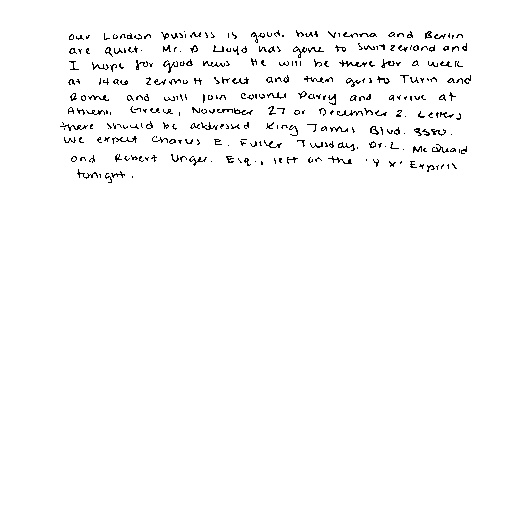 our London business is good, but Vienna and Berlin
are quiet. Mr. D Lloyd has gone to Switzerland and
I hope for good news He will be there for a week
at 1496 Zermott Street and then goes to Turin and
Rome and will join Colonel Parry and arrive at
Athens, Greece, November 27 or December 2. Letters
there should be addressed King James Blvd. 3580.
We expect Charles E. Fuller Tuesday. Dr. L. McQuaid
and Robert Unger. Esq., left on the 'Y X' Express
tonight.